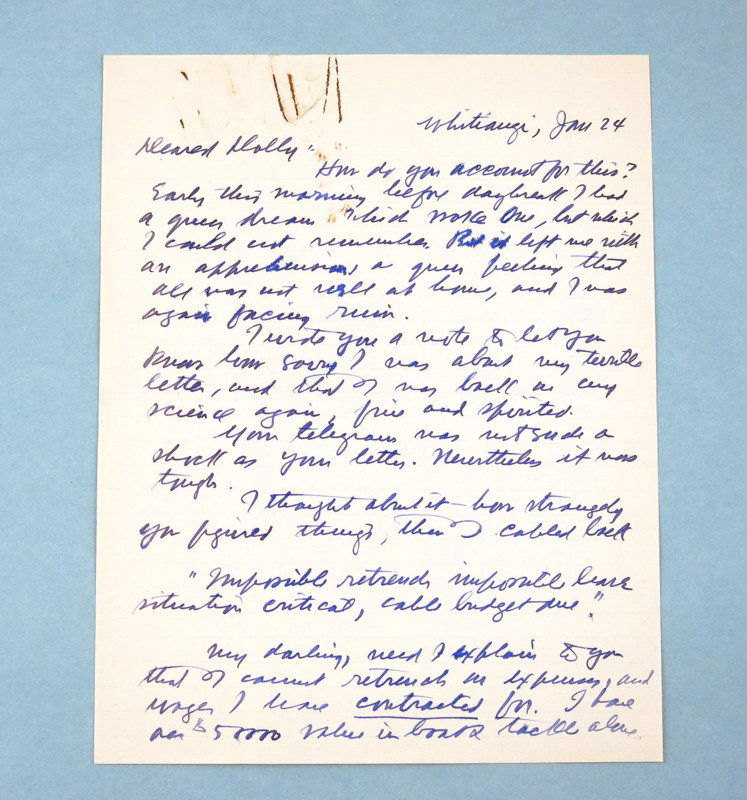 Whitianga, Jan 24
Dearest Dolly"
How do you account for this?
Early this morning before daybreak I had
a queer dream which woke me, but which
I could not remember. But it left me with
an apprehension, a queer feeling that
all was not well at home, and I was
again facing ruin.
I wrote you a note to let you
know how sorry I was about my terrible
letter, and that I was back on my
science again, fine and spirited.
Your telegram was not such a
shock as your letter. Nevertheless it was
tough.
I thought about it—how strangely
you figured things, then I cabled back
"Impossible retrench impossible leave
situation critical, cable budget due".
My darling, need I explain to you
that I cannot retrench on expenses, and
wages I have contracted for. I have
over $50000 value in boats tackle alone.